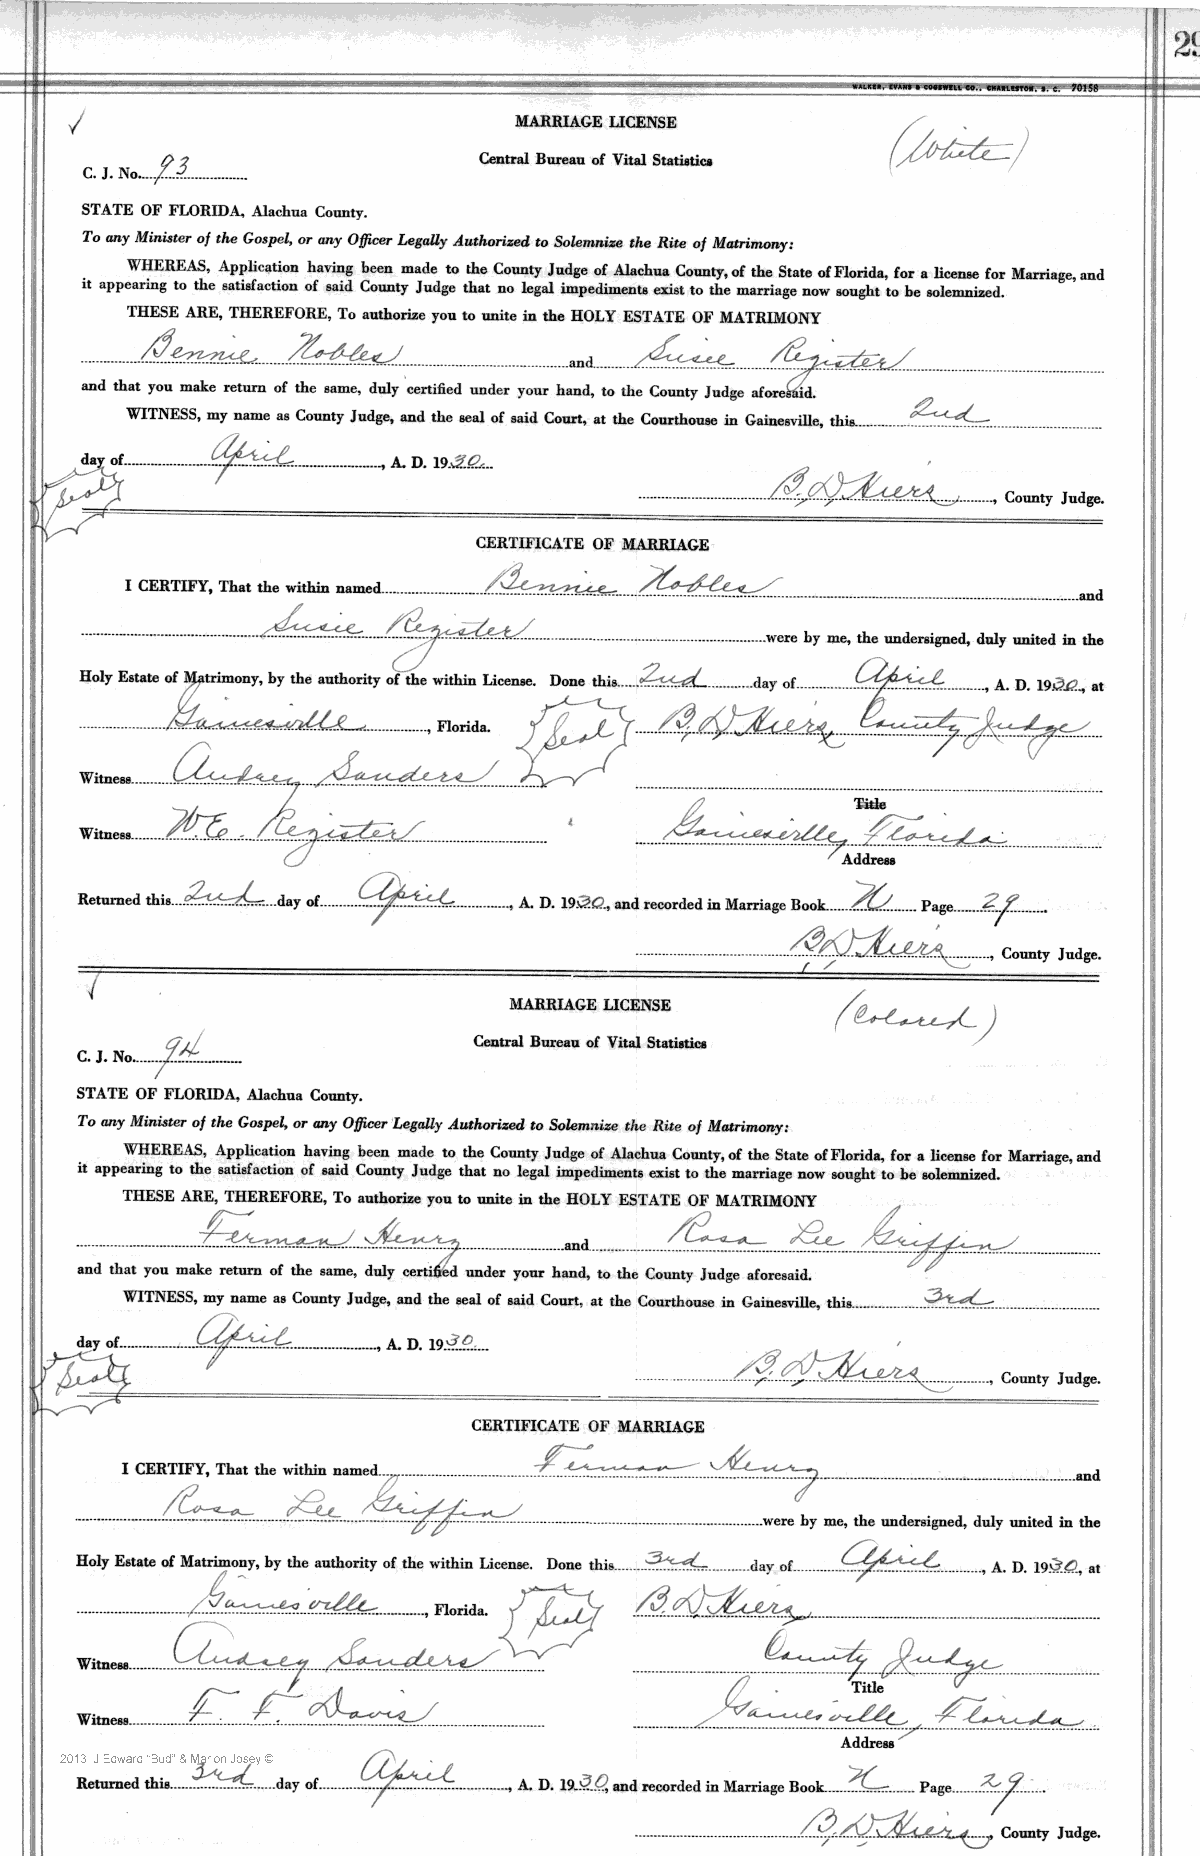 29
WALKER, EVANS & COGSWELL CO., CHARLESTON, S. C. 70158
MARRIAGE LICENSE
(White)
Central Bureau of Vital Statistics
C. J. No. 93
STATE OF FLORIDA, Alachua County.
To any Minister of the Gospel, or any Officer Legally Authorized to Solemnize the Rite of Matrimony:
WHEREAS, Application having been made to the County Judge of Alachua County, of the State of Florida, for a license for Marriage, and
it appearing to the satisfaction of said County Judge that no legal impediments exist to the marriage now sought to be solemnized.
THESE ARE, THEREFORE, To authorize you to unite in the HOLY ESTATE OF MATRIMONY
Bennie Nobles and Susie Register
and that you make return of the same, duly certified under your hand, to the County Judge aforesaid.
WITNESS, my name as County Judge, and the seal of said Court, at the Courthouse in Gainesville, this 2nd
day of April, A. D. 1930
Seal
B. D. Hiers, County Judge.
CERTIFICATE OF MARRIAGE
I CERTIFY, That the within named Bennie Nobles and
Susie Register were by me, the undersigned, duly united in the
Holy Estate of Matrimony, by the authority of the within License. Done this 2nd day of April, A. D. 1930, at
Gainesville, Florida. Seal B. D. Hiers, County Judge
Witness Audrey Sanders
Title
Witness W.E. Register Gainesville, Florida
Address
Returned this 2nd day of April, A. D. 1930, and recorded in Marriage Book N Page 29.
B. D. Hiers, County Judge.
MARRIAGE LICENSE
(Colored)
Central Bureau of Vital Statistics
C. J. No. 94
STATE OF FLORIDA, Alachua County.
To any Minister of the Gospel, or any Officer Legally Authorized to Solemnize the Rite of Matrimony:
WHEREAS, Application having been made to the County Judge of Alachua County, of the State of Florida, for a license for Marriage, and
it appearing to the satisfaction of said County Judge that no legal impediments exist to the marriage now sought to be solemnized.
THESE ARE, THEREFORE, To authorize you to unite in the HOLY ESTATE OF MATRIMONY
Ferman Henry and Rosa Lee Griffin
and that you make return of the same, duly certified under your hand, to the County Judge aforesaid.
WITNESS, my name as County Judge, and the seal of said Court, at the Courthouse in Gainesville, this 3rd
day of April, A. D. 1930
Seal
B. D. Hiers, County Judge.
CERTIFICATE OF MARRIAGE
I CERTIFY, That the within named Ferman Henry and
Rosa Lee Griffin were by me, the undersigned, duly united in the
Holy Estate of Matrimony, by the authority of the within License. Done this 3rd day of April, A. D. 1930, at
Gainesville, Florida. Seal B. D. Hiers
Witness Audrey Sanders County Judge
Title
Witness F. F. Davis Gainesville, Florida
Address
2013 J Edward "Bud" & Marion Josey ©
Returned this 3rd day of April, A. D. 1930, and recorded in Marriage Book N Page 29.
B. D. Hiers, County Judge.